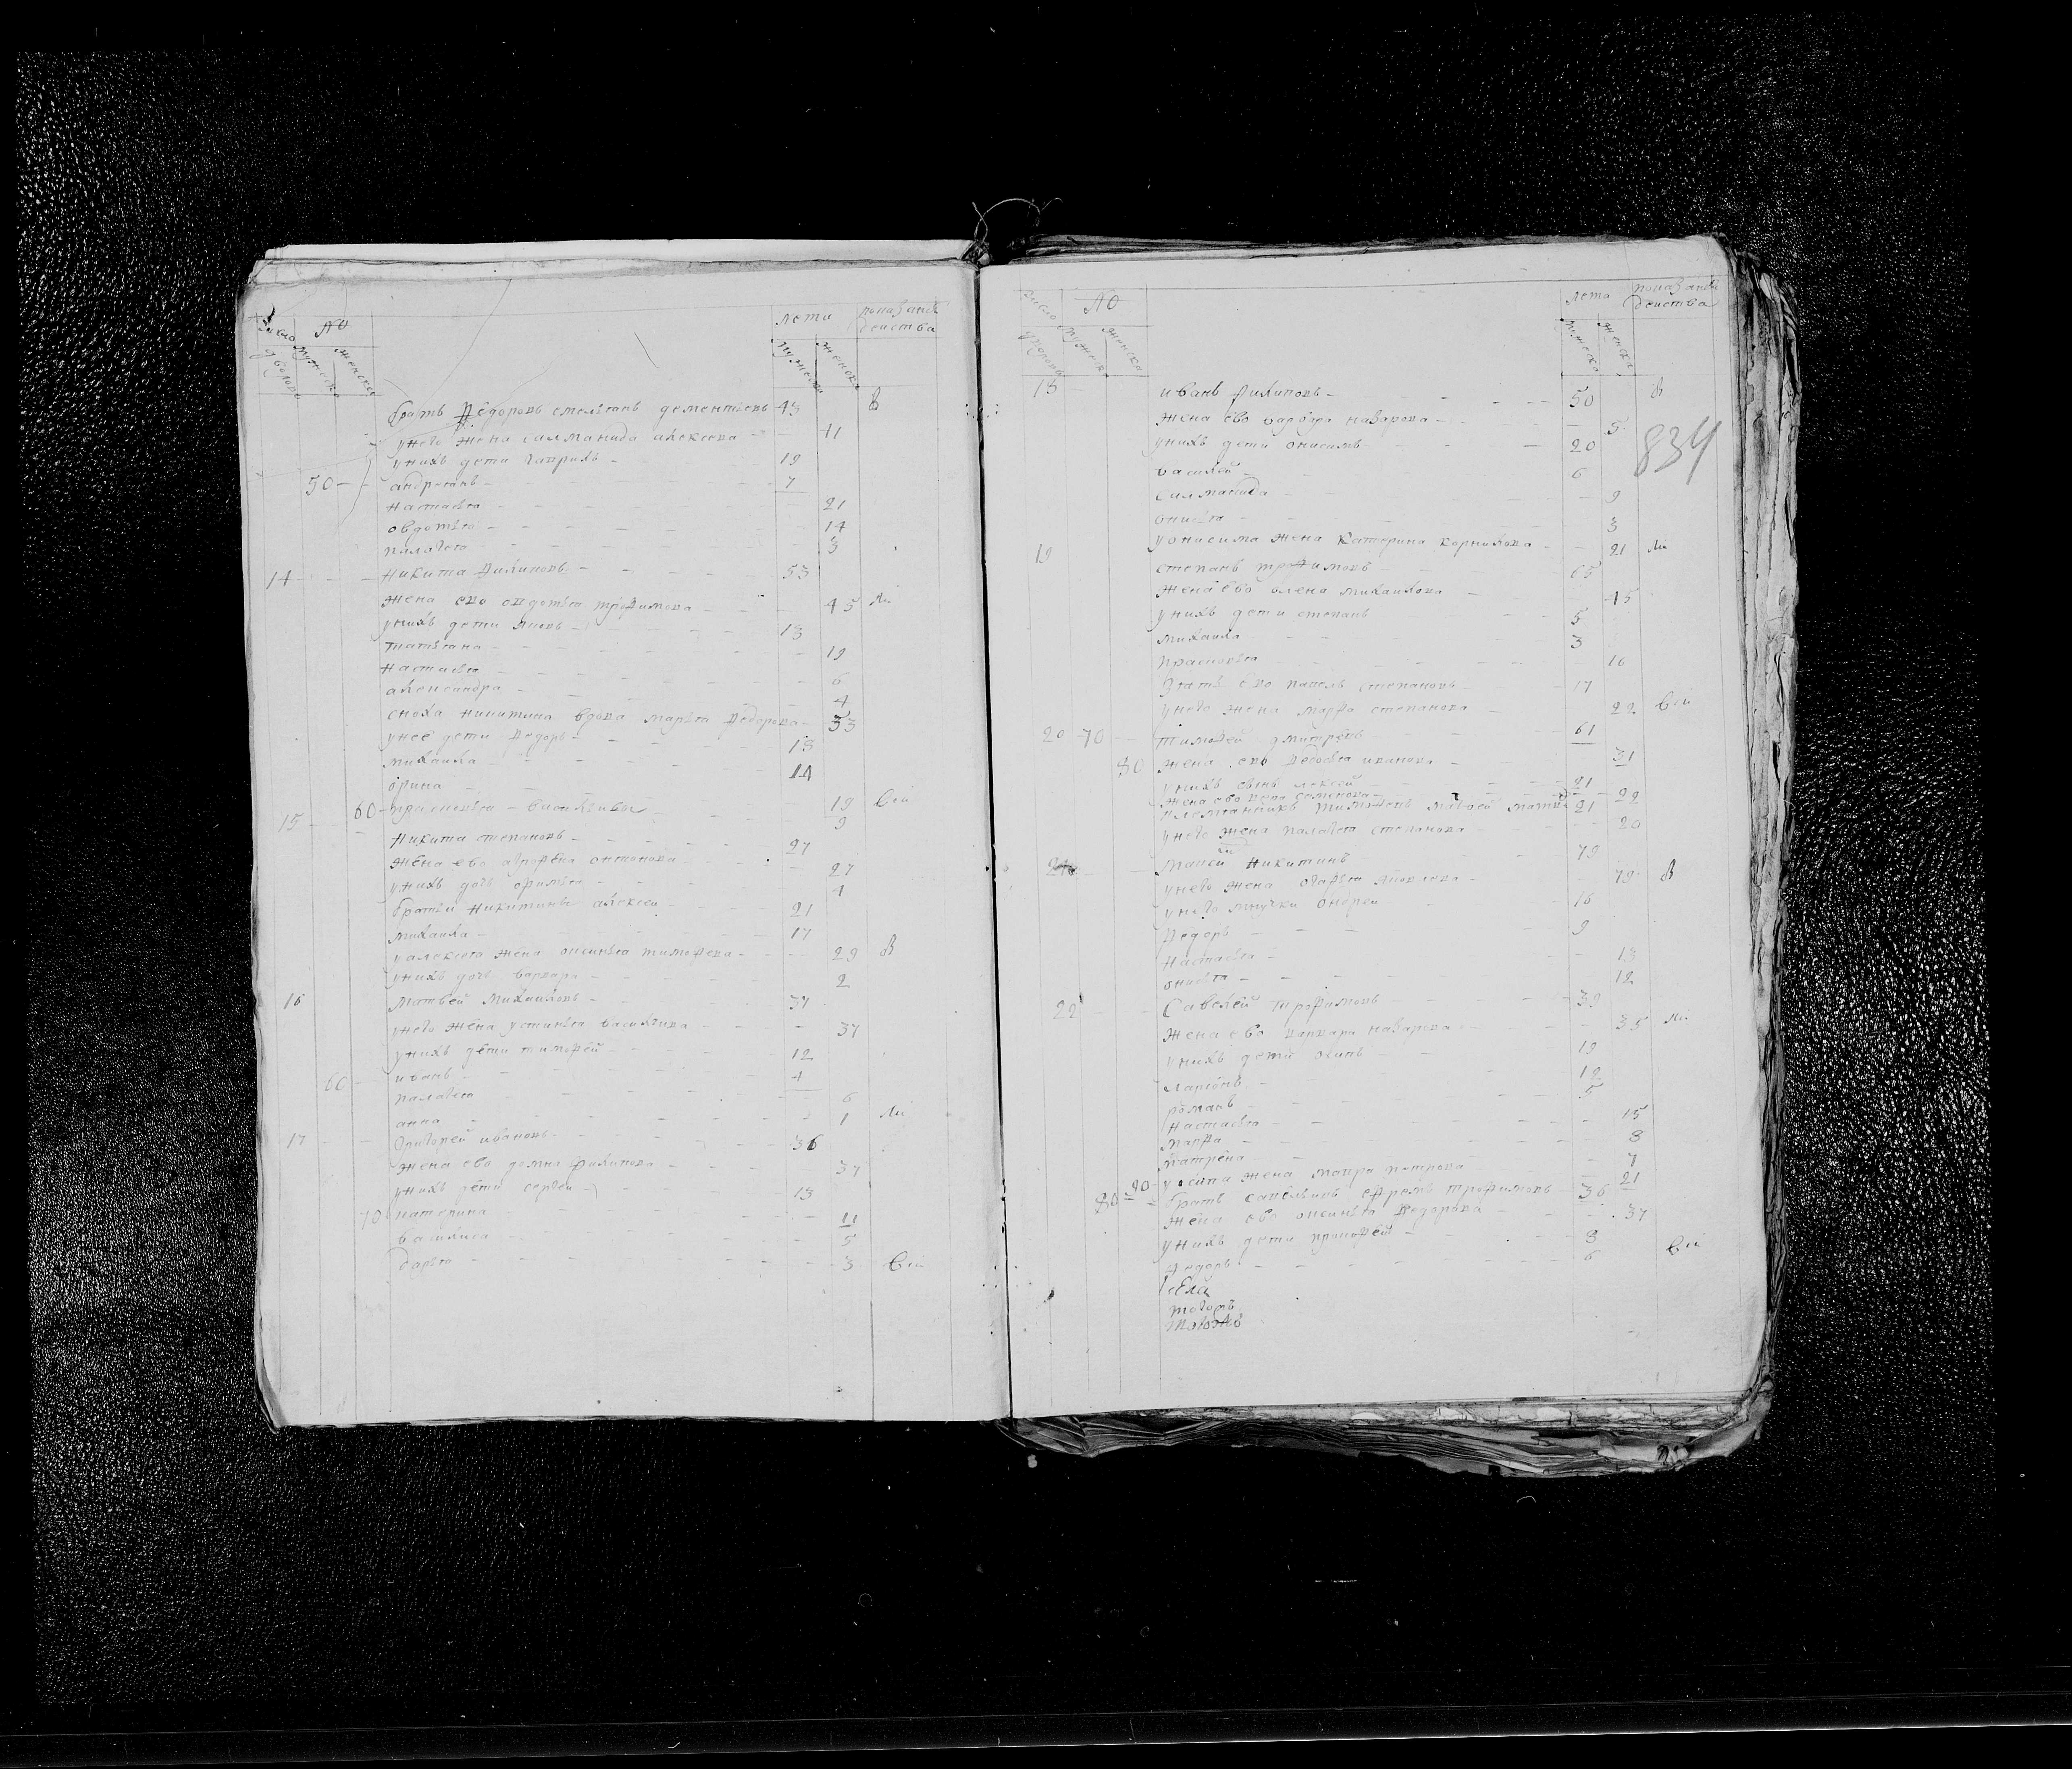 число дворовъ № мужеска женска лета мужеска женска показанiе действа
братъ Федоровъ емельянъ дементьевъ 43 В
унего жена соломанида алексева 41
унихъ дети гаврилъ 19
50 андреянъ 7
настасья 21
овдотья 14
палагея 3
14 Никита Филиповъ 53
жена ево овдотья трофимова 45 Ли
унихъ дети яковъ 13
татьяна 19
настасья 6
александра 4
сноха никитина вдова марья Федорова 53
унее дети Федоръ 18
михаила 14
орина
60 прасковья васильевы 19 Сей
15 9
Никита степановъ 27
жена ево аграфена онтонова 27
унихъ дочь
братьи Никитины алексей 21
михаила 17
уалексея жена оксинья тимофева 29 В
унихъ дочь варвара 2
16 Матвей Михаиловъ 37
унего жена устинья васильева 37
унихъ дети тимофей 12
60 иванъ 4
палагея 6
анна 1 Ли
17 Григорей ивановъ 36
жена ево домна Филипова 37
унихъ дети сергей 13
70 катерина 11
василиса 5
дарья 3 Сей
число дворовъ № мужеска женска лета мужеска женска показанiе действа
18 иванъ Филиповъ 50 В
жена ево варвара назарова 5
834
унихъ дети онисимъ 20
василей 6
соломанида 9
онисья 3
уонисима жена катерина корнилова 21 Ли
19 степанъ трофимовъ 65
жена ево олена михаилова 45
унихъ дети степанъ 5
михаила 3
прасковья 16
зять ево павелъ степановъ 17
унего жена марфа степанова 22 Сей
20 70 тимофей дмитревъ 61
80 жена ево Федосья иванова 31
унихъ сынъ алексей 21
жена ево семенова 22
племянникъ матвей 21
унего жена палагея степанова 20
Никитинъ 79
унего жена яковлева 79 В
унего внучки ондрей 16
Федоръ 9
настасья 13
онисья 12
22 Савелей трофимовъ 39
жена ево варвара назарова 35 Ли
унихъ дети осипъ 19
ларионъ 12
романъ 5
настасья 15
марфа 8
матрена 7
90 уосипа жена петрова 21
80 братъ савельевъ ефремъ трофимовъ 36
жена ево оксинья Федорова 37
унихъ дети прокофей 8
Федоръ 6 Сей
села
тогожъ
тогожъ